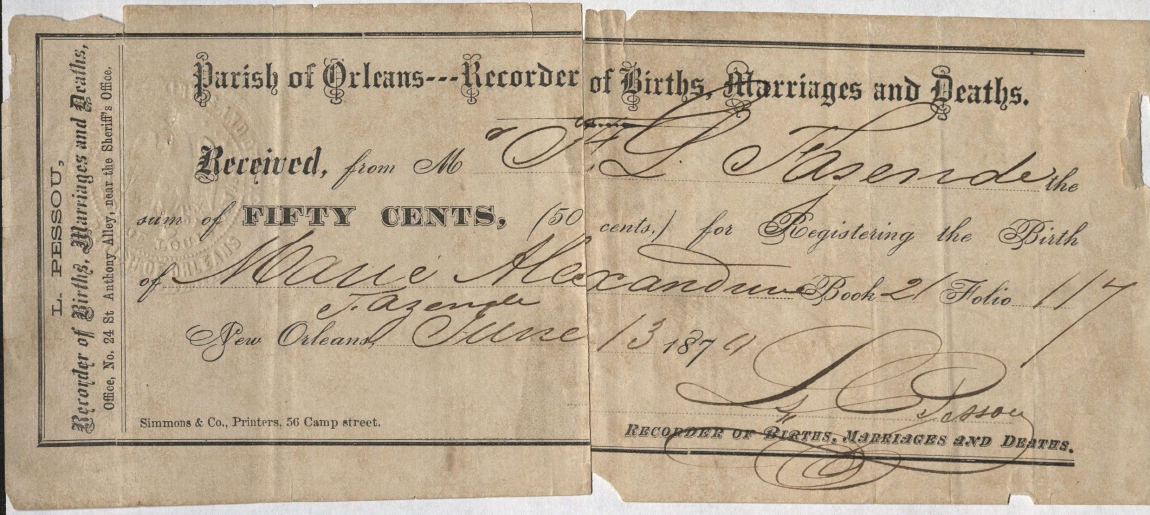 L. PESSOU,
Recorder of Births, Marriages and Deaths,
Office, No. 24 St Anthony Alley, near the Sheriff's Office.
Parish of Orleans---Recorder of Births, Marriages and Deaths.
Received, from M F. L. Fasende the
sum of FIFTY CENTS, (50 cents,) for Registering the Birth
of Marie Alexandrine Book 21 Folio 117
Fazende
New Orleans, June 13 187
L. Pessou
Simmons & Co., Printers, 56 Camp street.
RECORDER OF BIRTHS, MARRIAGES AND DEATHS.